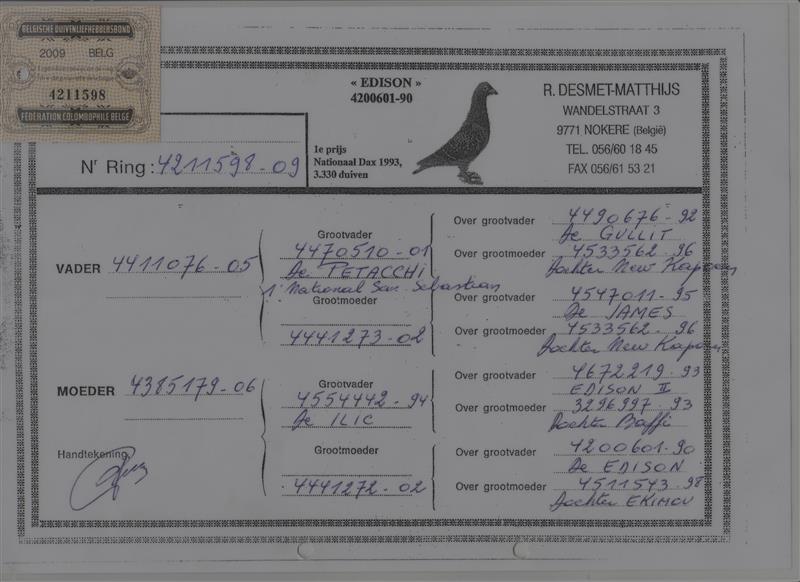 BELGISCHE DUIVENLIEFHEBBERSBOND
2009 BELG
4211598
FEDERATION COLOMBOPHILE BELGE
« EDISON »
4200601-90
1e prijs
Nationaal Dax 1993,
3.330 duiven
R. DESMET-MATTHIJS
WANDELSTRAAT 3
9771 NOKERE (België)
TEL. 056/60 18 45
FAX 056/61 53 21
Nr Ring : 4211598-09
VADER 4411076-05
Grootvader
4470510-01
De PETACCHI
1' National San Sebastian
Grootmoeder
4441273-02
Over grootvader 4490676-92
De GULLIT
Over grootmoeder 4533562-96
Dochter New Kapoen
Over grootvader 4547011-95
De JAMES
Over grootmoeder 4533562-96
Dochter New Kapoen
MOEDER 4385179-06
Grootvader
4554442-94
De ILIC
Grootmoeder
4441272-02
Over grootvader 4672219-93
EDISON II
Over grootmoeder 3296997-93
Dochter Baffi
Over grootvader 4200601-90
De EDISON
Over grootmoeder 4511543-98
Dochter EKIMOV
Handtekening,